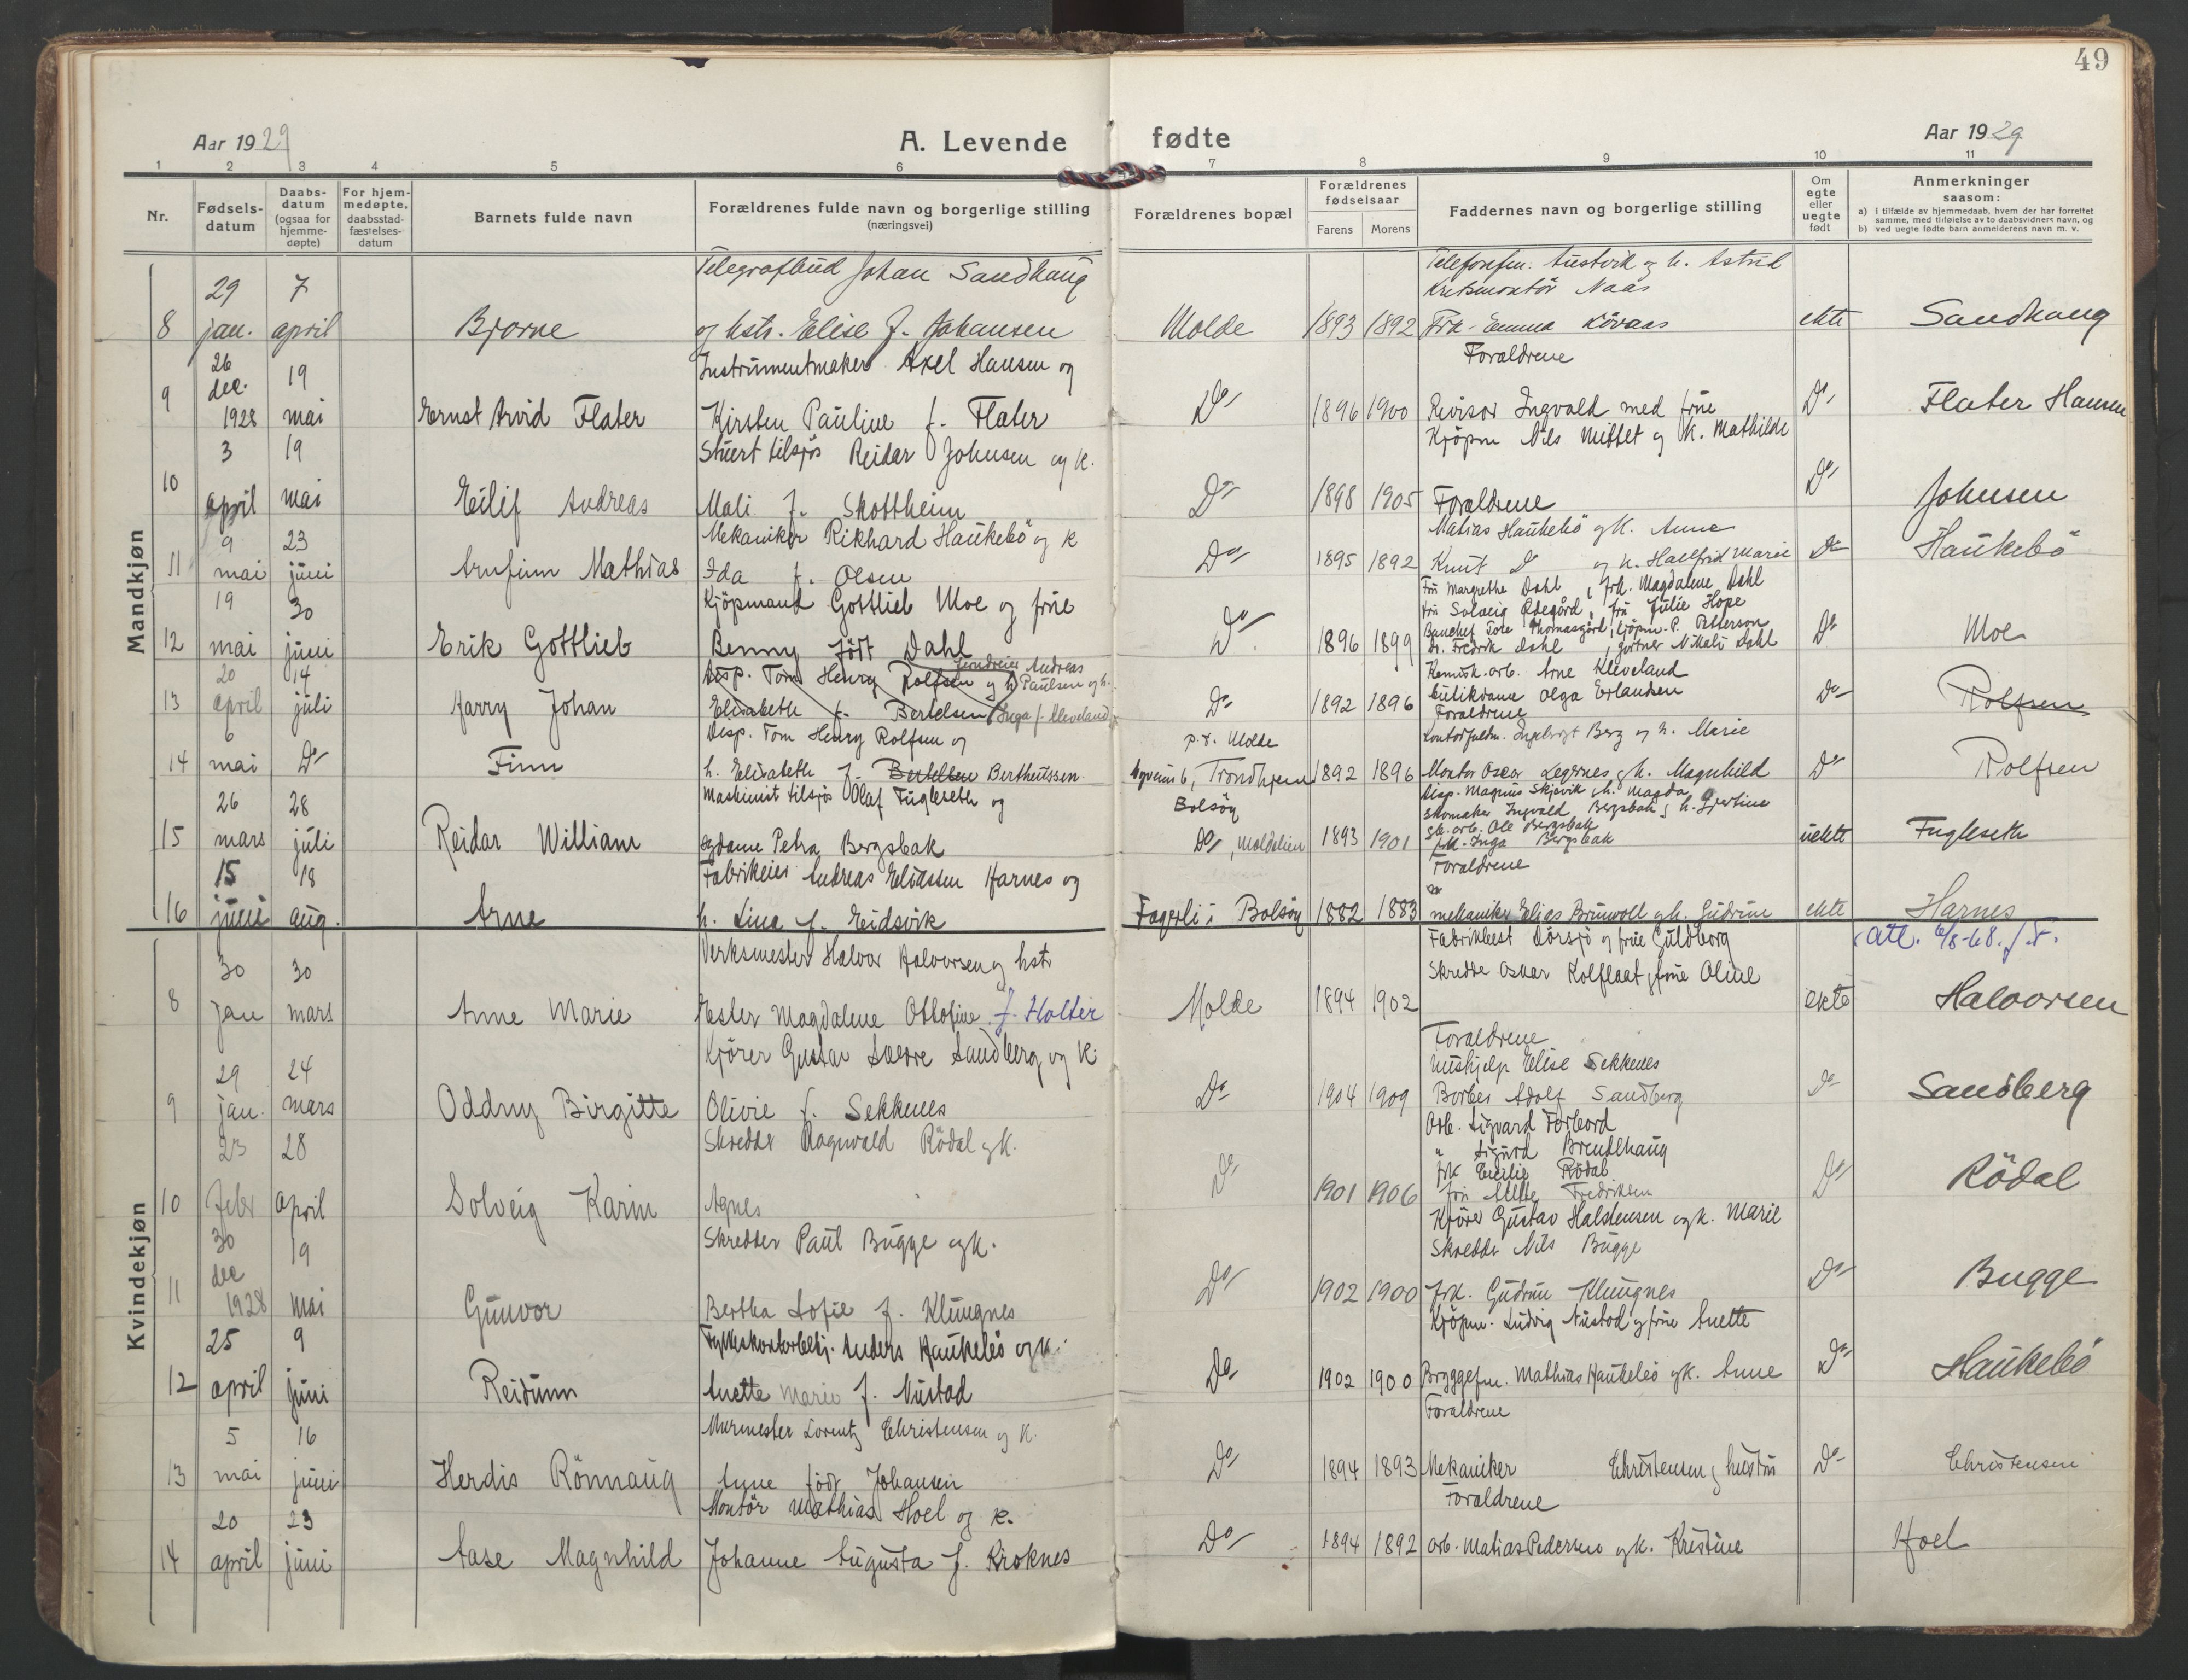 49
Aar 1929
A. Levende fødte
Aar 1929
1 2 3 4 5 6 7 8 9 10 11
Nr.
Fødsels-
datum
Daabs-
datum
(ogsaa for
hjemme-
døpte)
For hjem-
medøpte,
daabsstad-
fæstelses-
datum
Barnets fulde navn
Forældrenes fulde navn og borgerlige stilling
(næringsvei)
Forældrenes bopæl
Forældrenes
fødselsaar
Farens Morens
Faddernes navn og borgerlige stilling
Om
egte
eller
uegte
født
Anmerkninger
saasom:
a) i tilfælde av hjemmedaab, hvem der har forrettet
samme, med tilføielse av to daabsvidners navn, og
b) ved uegte fødte barn anmelderens navn m. v.
Mandkjøn
29 7 Telegrafbud Johan Sandhaug Telefonfm. Austvik og h. Astrid
Kretsmontör Naas
8 jan. april Bjarne og hstr. Elise f. Johansen Molde 1893 1892 Frk. Emma Lövaas ekte Sandhaug
26 19 Instrumentmaker Axel Hansen og Foraldrene
9 dec. 1928 mai Ernst Arvid Flater Kirsten Pauline f. Flater Do 1896 1900 Revisor Ingvald med frue Do Flater Hansen
3 19 Stuert tilsjøs Reidar Johnsen og k. Kjöpm Nils Mittet og k. Mathilde
10 april mai Eilif Andreas Mali f. Skottheim Do 1898 1905 Foraldrene Do Johnsen
9 23 Mekaniker Rikhard Haukebö og k Matias Haukebö og k. Anna
11 mai juni Arnfinn Mathias Ida f. Olsen Do 1895 1892 Knut Do og h. Hallfrid Marie Do Haukebö
19 30 Kjöpmand Gottlieb Moe og frue Fru Margrethe Dahl, frk. Magdalene Dahl
fru Solveig Ödegård, fru Julie Hope
12 mai juni Erik Gottlieb Benny född Dahl Do 1896 1899 Bankchef Tore Thomasgård, kjöpm. P. Petterson Do Moe
Dr. Fredrik Dahl, gartner Nikolai Dahl
20 14 Disp. Tom Henry Rolfsen og h Andreas Paulsen og h. Kemisk. arb. Arne Kleveland
13 april juli Harry Johan Elisabeth f. Bertelsen Inga f. Kleveland Do 1892 1896 Butikdame Olga Erlandsen Do Rolfsen
Foraldrene
6 Disp. Tom Henry Rolfsen og p.t. Molde Kontorfuldm. Ingebrigt Berg og h. Marie
14 mai Do Finn h. Elisabeth f. Bertelsen Bertheussen Trondhjem 1892 1896 Montör Oscar Legernes og h. Magnhild Do Rolfsen
26 28 Maskinist tilsjøs Olaf Fugleseth og Bolsöy Disp. Magnus Skjevik, h. Magda
Skomaker Ingvald Bergsbak, h. Gjertine
15 mars juli Reidar William sydame Petra Bergsbak Do, Moldelien 1893 1901 sk. arb. Ole Bergsbak uekte Fugleseth
frk. Inga Bergsbak
15 18 Fabrikeier Andreas Eliassen Harnes og Foraldrene
16 juni aug. Arne h. Lina f. Eidsvik Fagerli i Bolsöy 1882 1883 mekaniker Elias Brunvoll og h. Gudrun ekte Harnes
Kvindekjøn
Verksmester Halvor Halvorsen og hstr Fabrikbest Dörsjö og frue Guldborg Att. 6/8-68.
30 30 Skredder Oskar Kolflaat og frue Oline
8 jan mars Anne Marie Ester Magdalene Ottofine f. Holter Molde 1894 1902 ekte Halvorsen
29 24 Kjörer Gustav Sverre Sandberg og k. Foraldrene
Hushjelp Elise Sekkenes
9 jan. mars Oddny Birgitte Olivie f. Sekkenes Do 1904 1909 Berber Adolf Sandberg Do Sandberg
23 28 Skredder Ragnvald Rödal og k. Arb. Sigvard Forbord
" Sigurd Brendhaug
frk Cecilie Rödal
10 febr april Solveig Karin Agnes Do 1901 1906 fru Mette Fredriksen Do Rödal
30 19 Skredder Paul Bugge og k. Kjörer Gustav Halstensen og k. Marie
Skredder Nils Bugge
11 dec 1928 mai Gunvor Bertha Sofie f. Klungnes Do 1902 1900 frk. Gudrun Klungnes Do Bugge
25 9 Fylkeskontorbetj. Anders Haukebö og k. Kjöpm. Ludvig Nustad og frue Anette
12 april juni Reidunn Anette Marie f. Nustad Do 1902 1900 Bryggefm. Mathias Haukebö og k. Anne Do Haukebö
5 16 Murmester Lorentz Christensen og k. Foraldrene
13 mai juni Herdis Rönnaug Anne född Johansen Do 1894 1893 Mekaniker Christensen og hustru Do Christensen
20 23 Montör Mathias Hoel og k. Foraldrene
14 april juni Aase Magnhild Johanne Augusta f. Kroknes Do 1894 1892 arb. Matias Pedersen og k. Kristine Hoel